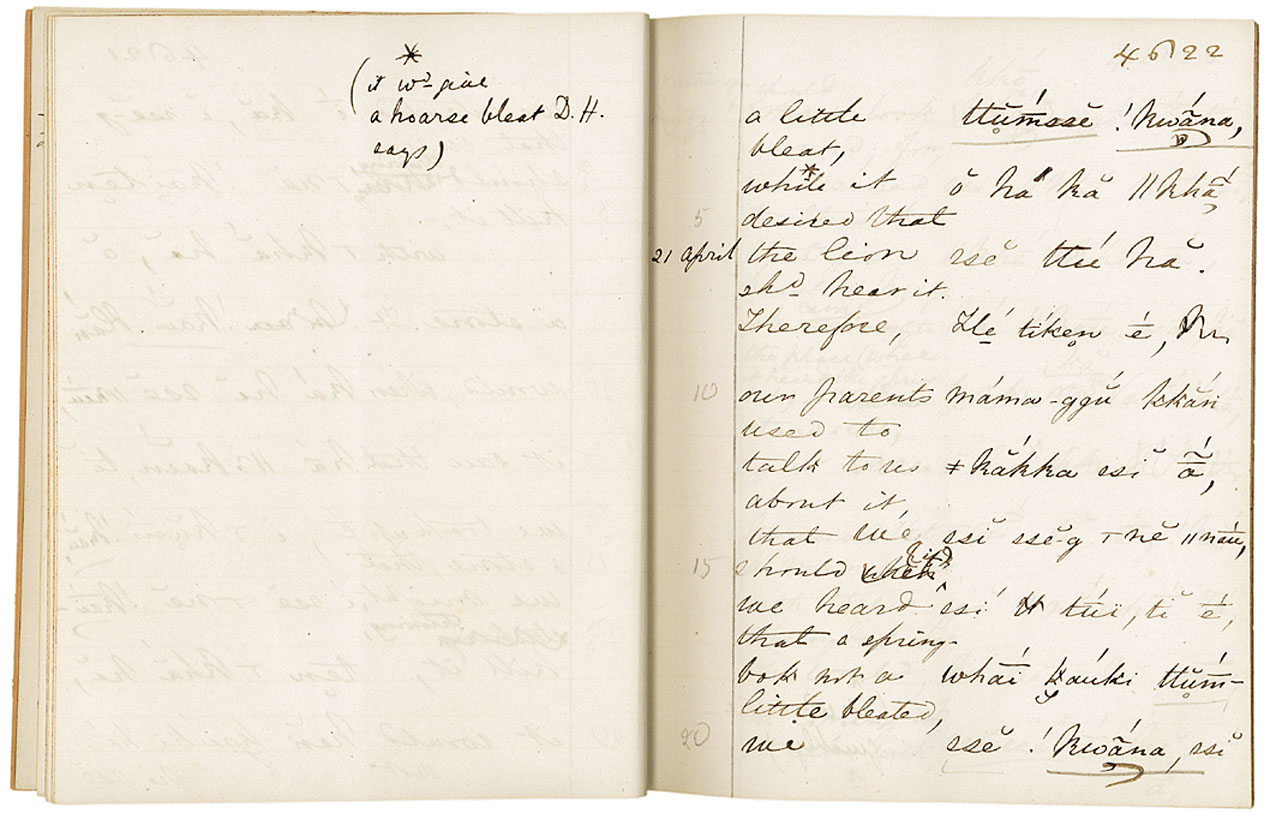 *
(it wd give
a hoarse bleat D. H.
says)
4622
a little ttŭḿssĕ !kwā́na,
bleat,
while* it ŏ hă kă ǁkhā̃
5 desired that
21 April the lion ssĕ ttú hă.
shd hear it.
Therefore, Hé tíken é,
10 our parents máma-ggŭ́ kkắn
used to
talk to us ǂkăkka ssĭ ā̃́,
about it,
that we ssĭ ssĕ-g ǀnĕ ǁnáu,
15 should if,
we heard ssĭ túi, tĭ é,
that a spring-
bok not a whái yáuki ttŭḿ-
little bleated,
20 we ssĕ !kwā́na, ssĭ